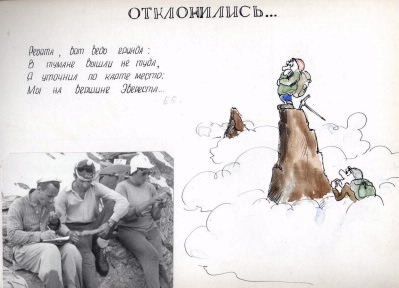 ОТКЛОНИЛИСЬ...
Ребята, вот ведо ерунда:
В тумане вышли не туда,
Я уточнил по карте место:
Мы на вершине Эвереста...